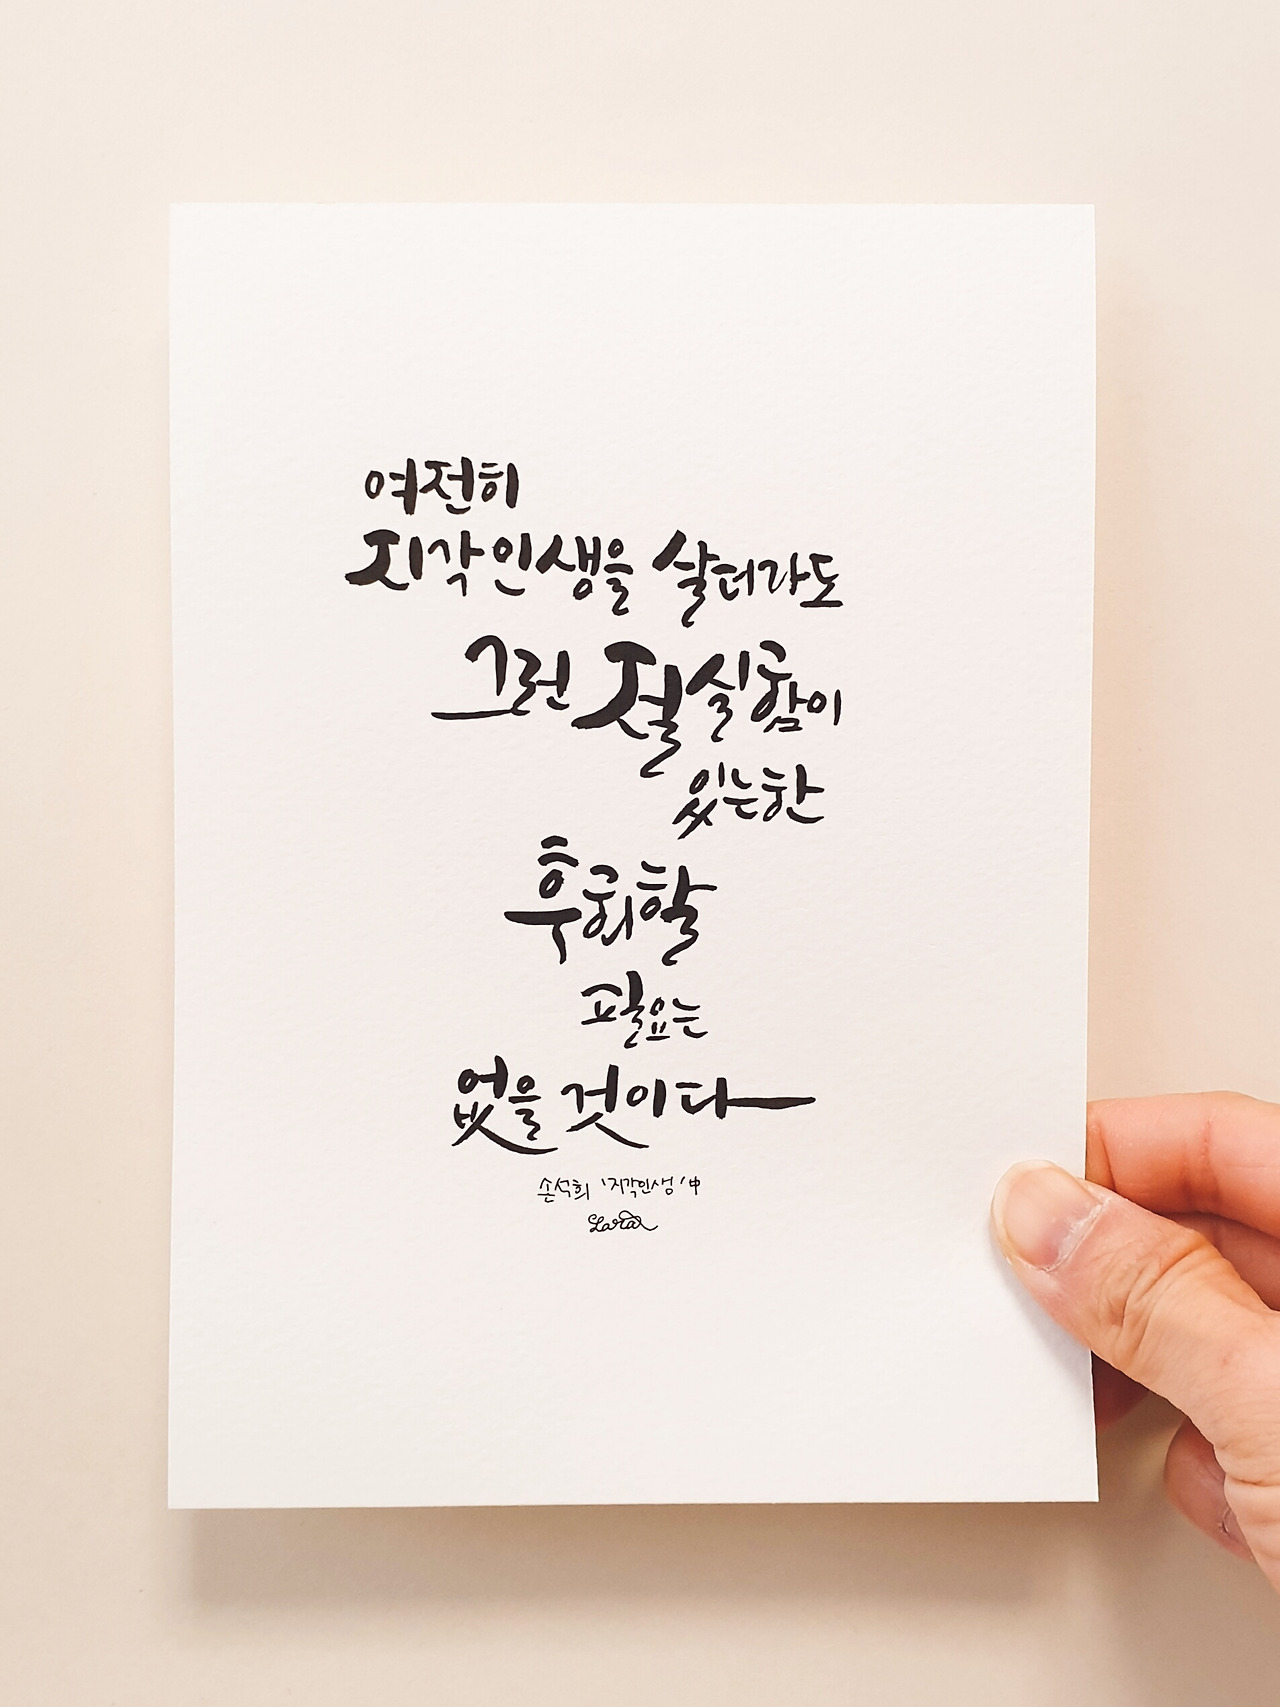 여전히
지각인생을 살더라도
그런 절실함이
있는한
후회할
필요는
없을 것이다
손석희 '지각인생' 中
Lara